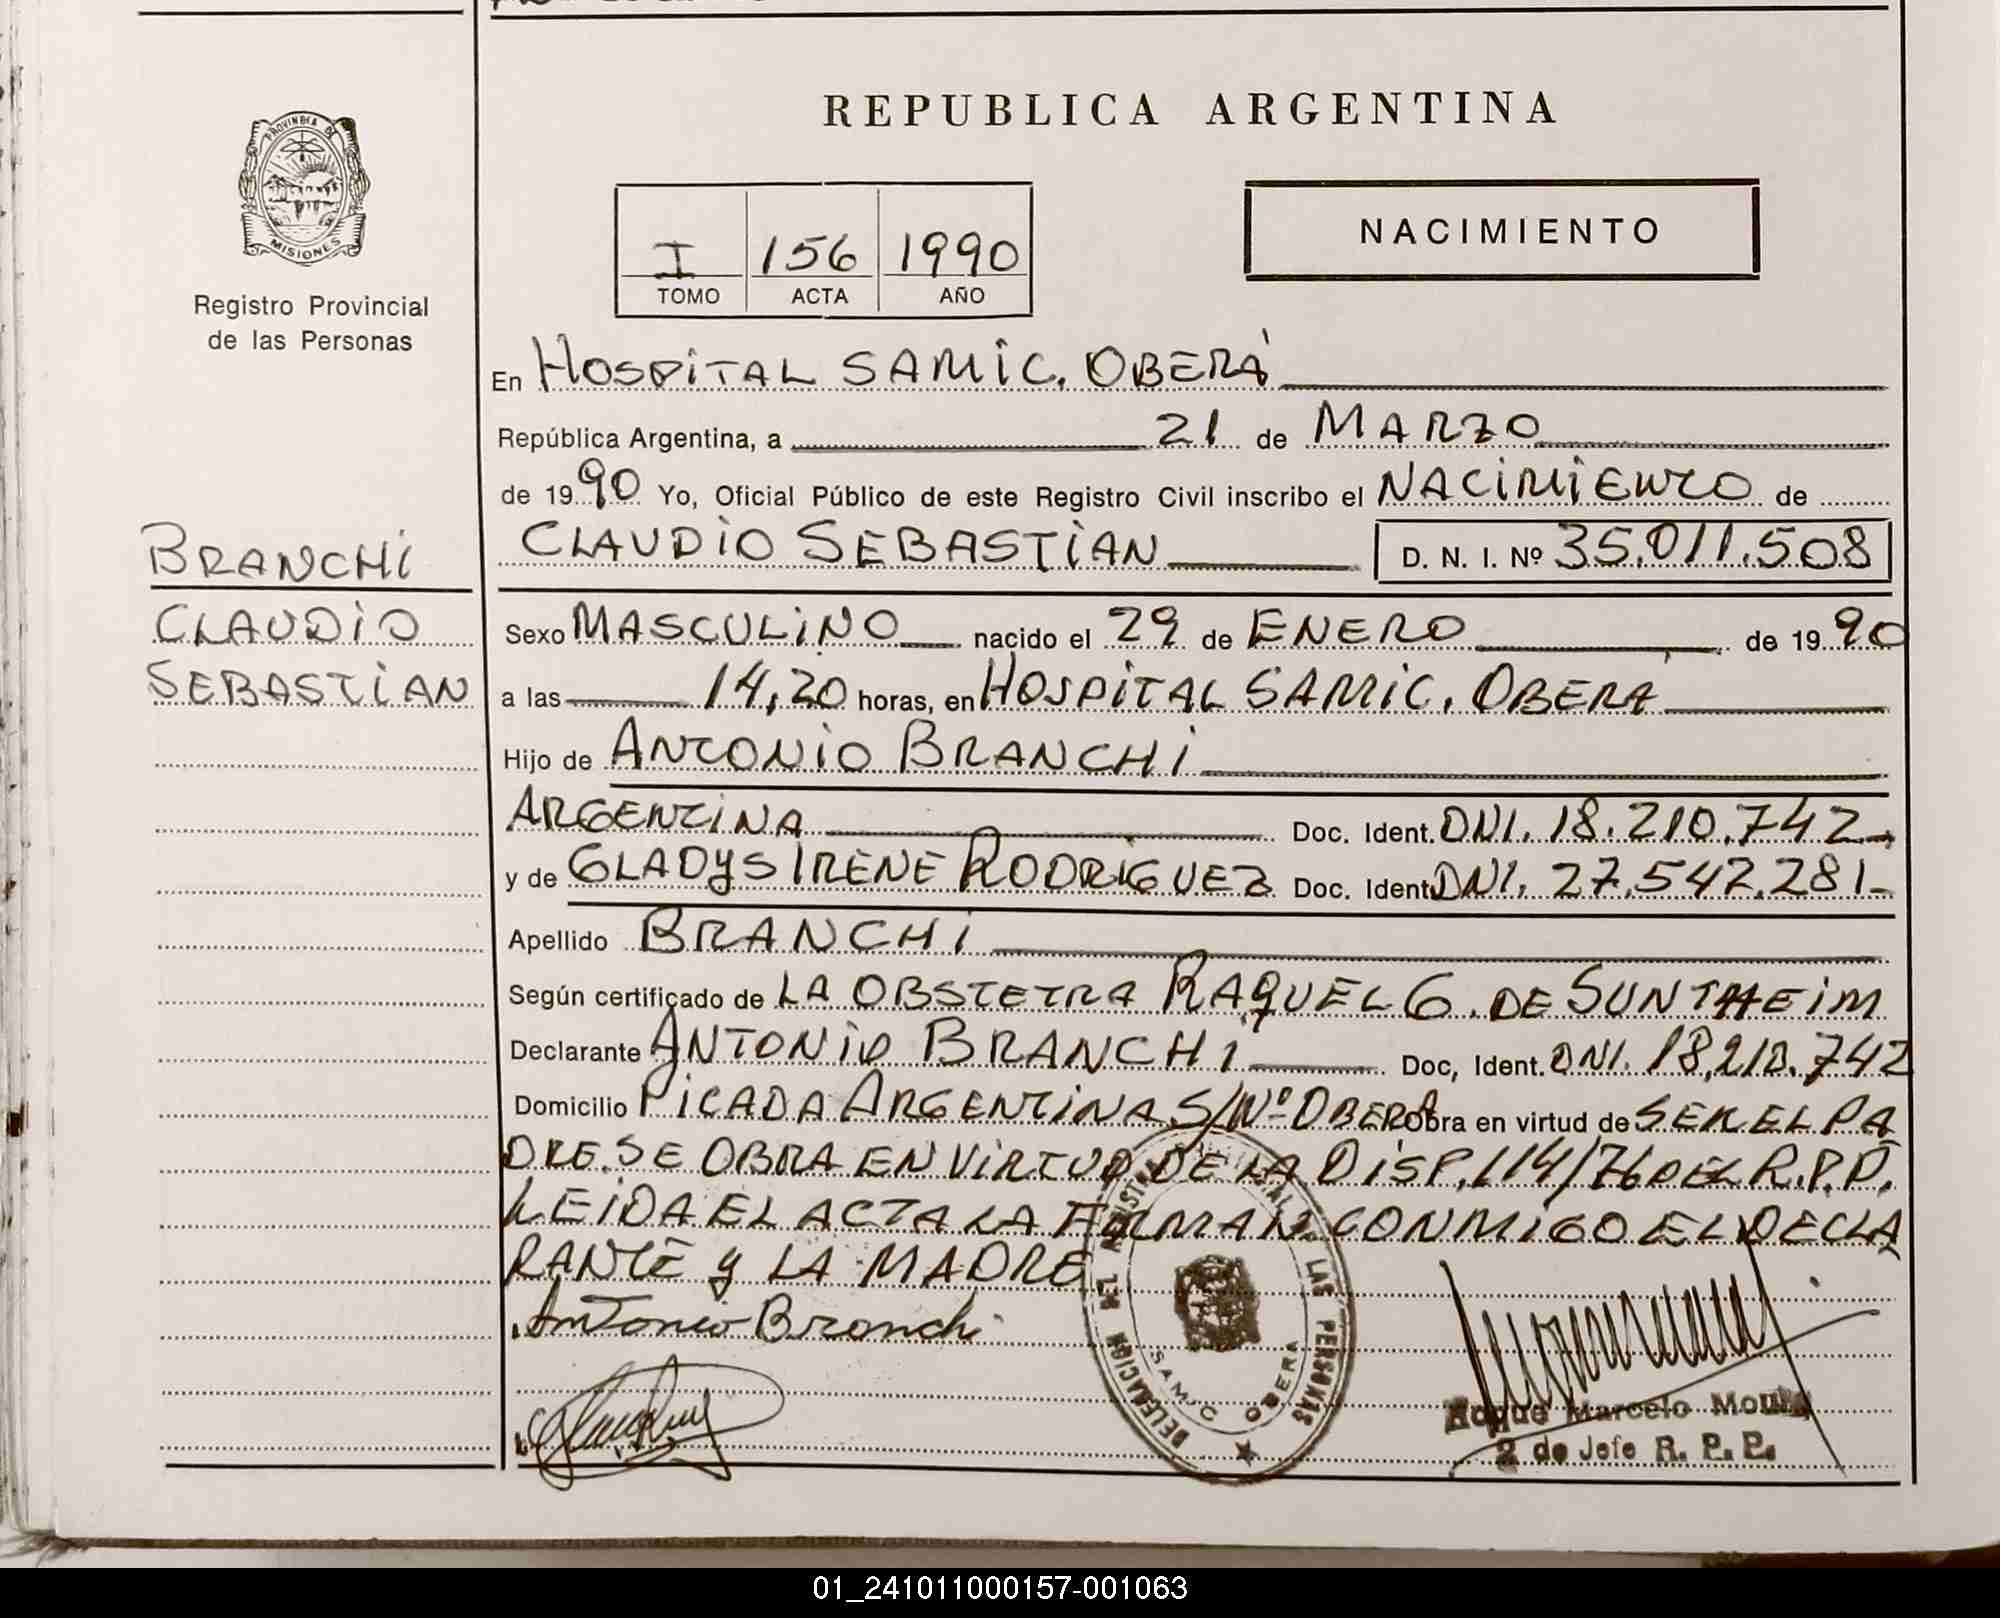 REPUBLICA ARGENTINA
PROVINCIA DE
MISIONES
Registro Provincial
de las Personas
NACIMIENTO
I 156 1990
TOMO ACTA AÑO
En HOSPITAL SAMIC. OBERÁ
República Argentina, a 21 de MARZO
de 1990 Yo, Oficial Público de este Registro Civil inscribo el NACIMIENTO de
CLAUDIO SEBASTIAN D. N. I. Nº 35.011.508
BRANCHI
CLAUDIO
SEBASTIAN
Sexo MASCULINO nacido el 29 de ENERO de 1990
a las 14,20 horas, en HOSPITAL SAMIC. OBERÁ
Hijo de ANTONIO BRANCHI
ARGENTINA Doc. Ident. DNI. 18.210.742
y de GLADYS IRENE RODRIGUEZ Doc. Ident. DNI. 27.542.281
Apellido BRANCHI
Según certificado de LA OBSTETRA RAQUEL G. DE SUNTHEIM
Declarante ANTONIO BRANCHI Doc, Ident. DNI. 18.210.742
Domicilio PICADA ARGENTINA S/Nº OBERA Obra en virtud de SER EL PA
DRE. SE OBRA EN VIRTUD DE LA DISP. 114/76 DEL R.P.P.
LEIDA EL ACTA LA FIRMAN CONMIGO EL DECLA
RANTE y LA MADRE
Antonio Branchi
DELEGACION DEL REGISTRO PROVINCIAL DE LAS PERSONAS
SAMIC OBERA
Roque Marcelo
2 do Jefe R. P. P.
01_241011000157-001063